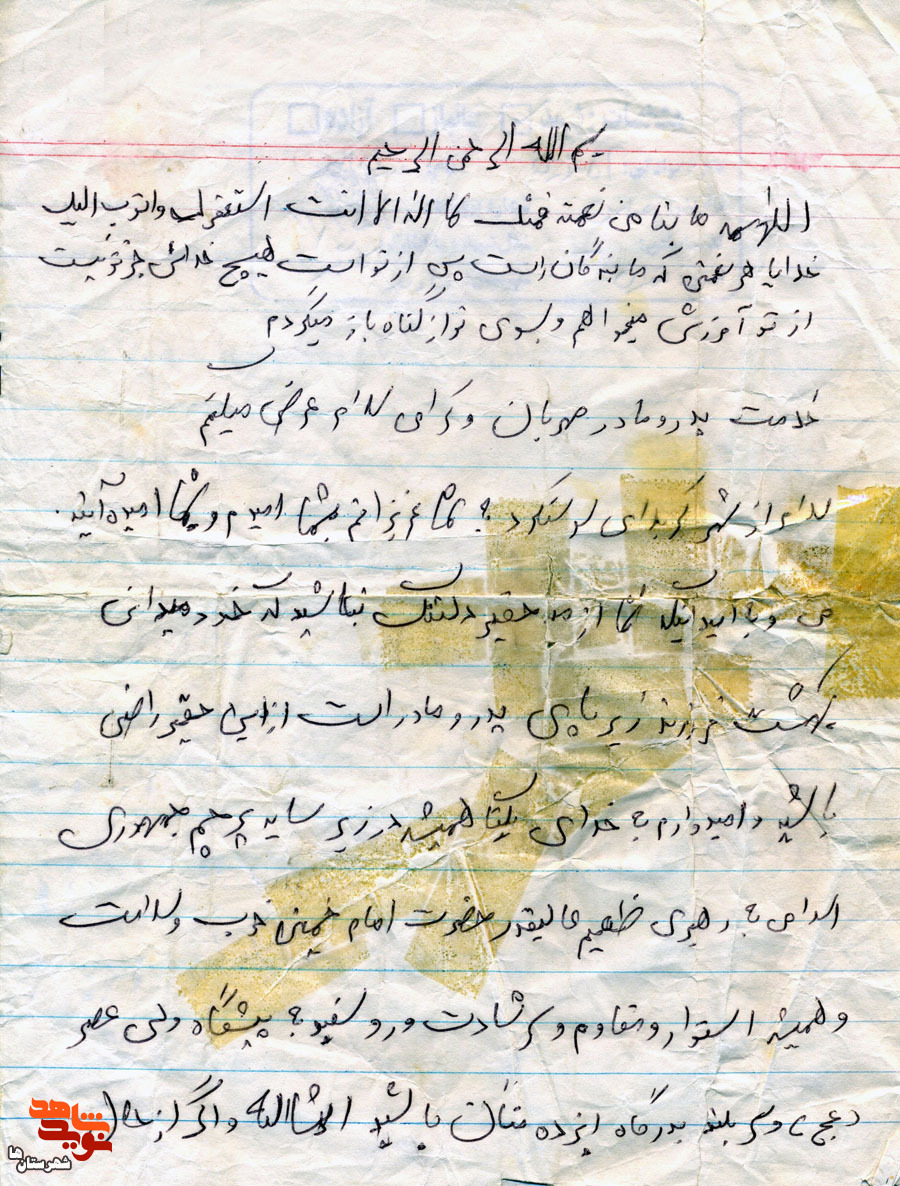 بسم الله الرحمن الرحیم
اللهم ما بنا من نعمته فمنک لا اله الا انت استغفرک و اتوب الیک
خدایا هر نعمتی که ما بندگان راست پس از تو است هیچ خدائی جز تو نیست
از تو آمرزش میخواهم و بسوی تو از گناه باز میگردم
خدمت پدر و مادر مهربان و گرامی سلام عرض میکنم
سلام از شهر کربلای سوسنگرد به شما عزیزانم بشما امیدم و شما امید آینده
من و با امید آنکه شما از حقیر دلتنگ نباشید که خود میدانی
بهشت فرزند زیر پای پدر و مادر است از این حقیر راضی
باشید و امیدوارم به خدای یکتا همیشه در زیر سایه پرچم جمهوری
اسلامی به رهبری عالیقدر حضرت امام خمینی خوب و سلامت
و همیشه استوار و مقاوم و سر شادت و رو سفید به پیشگاه ولی عصر
(عج) و سر بلند بدرگاه ایزده منان باشید انشاالله و اگر از حال
نوید شاهد
شهرستان‌ها